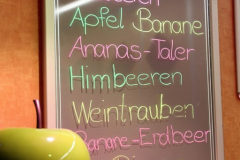 Apfel Banane
Ananas-Taler
Himbeeren
Weintrauben
Banane-Erdbeer